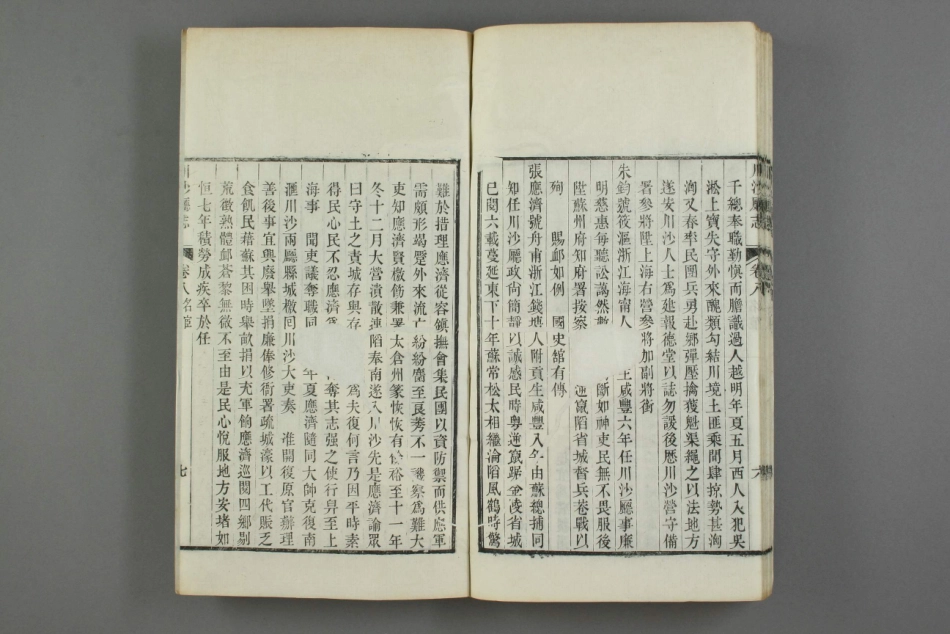 川沙廳志 卷八
千總奉職勤愼而膽識過人越明年夏五月西人入犯吳
淞上寶失守外來醜類勾結川境土匪乘間肆掠勢甚洶
洶又春率民團兵勇赴鄉彈壓擒獲魁渠繩之以法地方
遂安川沙人士爲建報德堂以誌勿諼後歷川沙營守備
署參將陞上海右營參將加副將銜
朱鈞號筱漚浙江海甯人 咸豐六年任川沙廳事廉
明慈惠每聽訟藹然 斷如神吏民無不畏服後
陞蘇州府知府署按察 逆竄陷省城督兵巷戰以
殉 賜卹如例 國史舘有傳
張應濟號舟甫浙江錢塘人附貢生咸豐八年由蘇總捕同
知任川沙廳政尚簡靜以誠感民時粵逆竄踞金陵省城
已閱六載蔓延東下十年蘇常松太相繼淪陷風鶴時驚
六
難於措理應濟從容鎭撫會集民團以資防禦而供應軍
需頗形竭蹷外來流亡紛紛麕至良莠不一譏察爲難大
吏知應濟賢檄飭兼署太倉州篆恢恢有餘裕至十一年
冬十二月大營潰散連陷奉南遂入川沙先是應濟諭眾
曰守土之責城存與存 爲夫復何言乃因平時素
得民心民不忍應濟 奪其志强之使行舁至上
海事 聞吏議奪職同 年夏應濟隨同大帥克復南
滙川沙兩廳縣城檄回川沙大吏奏 准開復原官辦理
善後事宜興廢舉墜捐廉俸修衙署疏城濠以工代賑乏
食飢民藉蘇其困時舉畝捐以充軍餉應濟巡閱四鄉剔
荒徵熟體卹蒼黎無微不至由是民心悅服地方安堵如
恒七年積勞成疾卒於任
川沙廳志 卷八 名宦
七